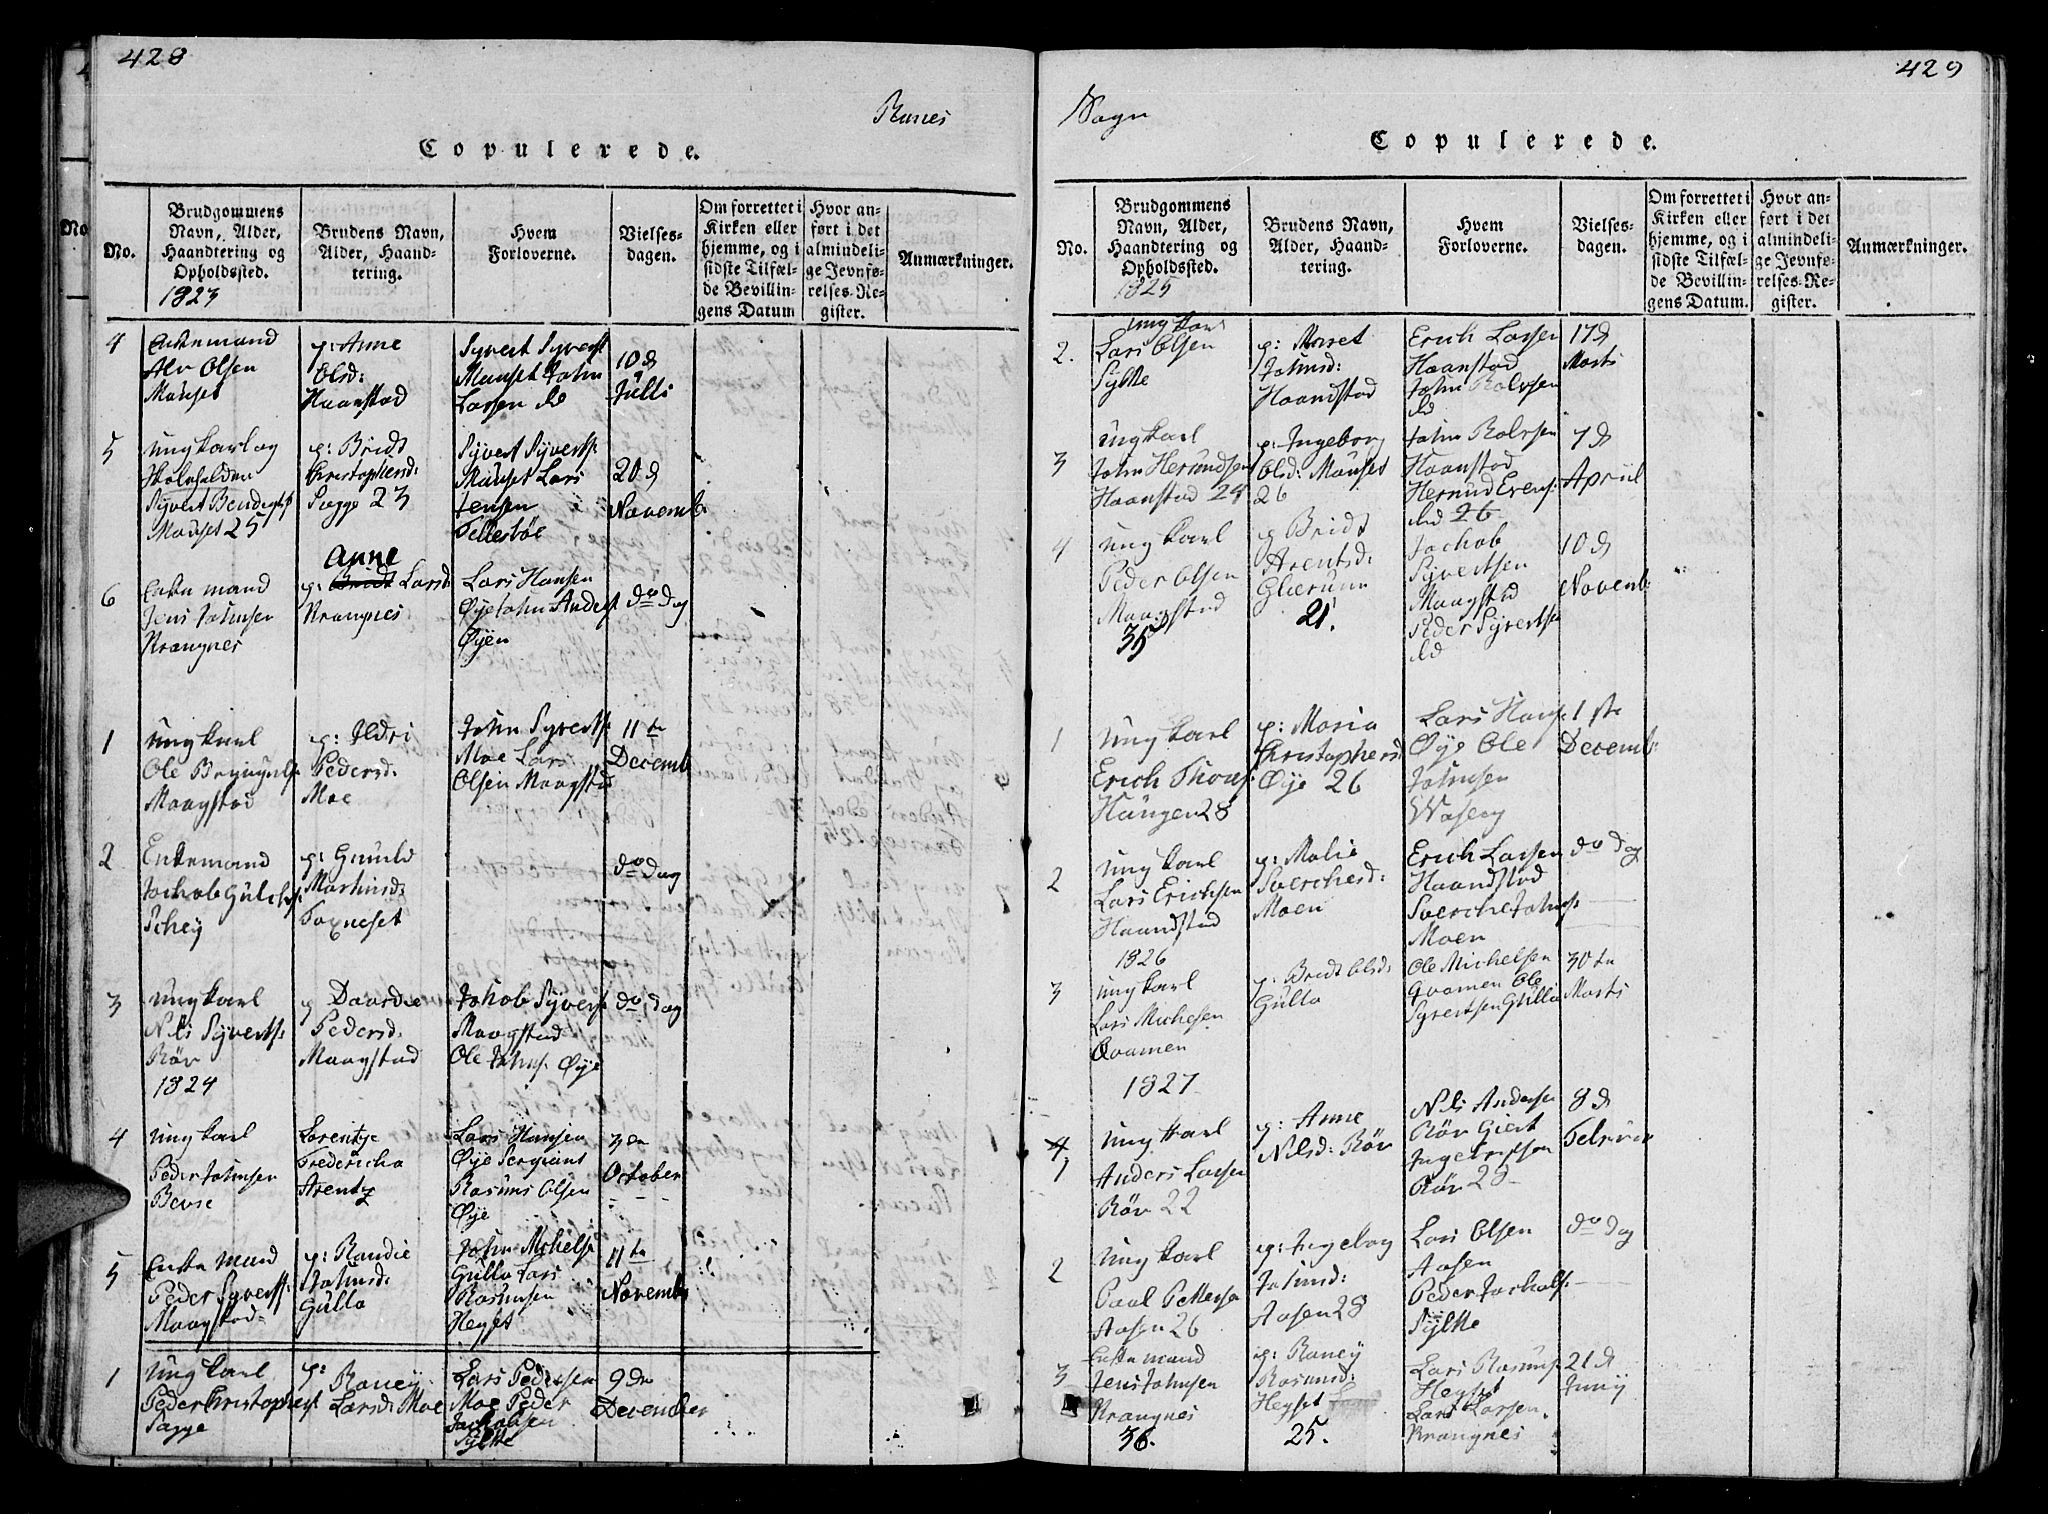 428
Ranes
Copulerede.
No.
Brudgommens
Navn, Alder,
Haandtering og
Opholdssted.
1823
Brudens Navn,
Alder, Haand-
tering.
Hvem
Forloverne.
Vielses-
dagen.
Om forrettet i
Kirken eller
hjemme, og i
sidste Tilfæl-
de Bevillin-
gens Datum
Hvor an-
ført i det
almindeli-
ge Jevnfø-
relses-Re-
gister.
Anmærkninger.
4
Enkemand
Alv Olsen
Mauset
p: Anne
Olsd:
Haanstad
Syvert Syverts
Mauset John
Larsen do
10 d
Julli
5
Ungkarl og
Skoleholder
Syvert
Mauset 25
p: Bridt
Christophersd:
Sagge 23
Syvert Syverts:
Mauset Lars
Jensen
Tellesbøe
20 d
Novemb:
6
Enkemand
Jens Johnsen
Krangnes
Anne
p: Bridt Larsd:
Krangnes
Lars Hansen
Øye John Anders
Øyen
do dag
1
Ungkarl
Ole
Maagstad
p: Ildri
Pedersd:
Moe
John Syverts:
Moe Lars
Olsen Maagstad
11te
Decemb
2
Enkemand
Jachob Gulchs:
Schey
p: Gunild
Martinsd:
Foxneset
do dag
3
Ungkarl
Nils Syverts:
Røv
1824
p Daardie
Pedersd:
Maagstad
Jakob Syverts
Maagstad
Ole Johns: Øye
do dag
4
Ungkarl
Peder Johnsen
Bevse
Lorentje
Fredericha
Arentz
Lars Hansen
Øye Sergiant
Rasmus Olsen
Øye
3de
October
5
Enkemand
Peder Syverts:
Maagstad
p: Randie
Johnsd:
Gulla
John Michels
Gulla Lars
Rasmusen
Heyset
11te
Novemb
1
Ungkarl
Peder Christophers
Sagge
p:
Raney
Larsd: Moe
Lars Pedersen
Moe Peder
Jachobsen
Sylte
9de
December
429
Sogn
Copulerede.
No.
Brudgommens
Navn, Alder,
Haandtering og
Opholdssted.
1825
Brudens Navn,
Alder, Haand-
tering.
Hvem
Forloverne.
Vielses-
dagen.
Om forrettet i
Kirken eller
hjemme, og i
sidste Tilfæl-
de Bevillin-
gens Datum.
Hvor an-
ført i det
almindeli-
ge Jevnfø-
relses-Re-
gister.
Anmærkninger.
2.
Ungkarl
Lars Olsen
Sylte
p: Maret
Johnsd:
Haandstad
Erich Larsen
Haanstad
John Rolvsen
do
17 d
Marts
3
Ungkarl
John Herundsen
Haanstad 24
p: Ingeborg
Olsd: Mauset
26
John Rolvsen
Haanstad
Herund Evens:
do 26
7 d
Apriil
4
Ungkarl
Peder Olsen
Maagstad
35
p Bridt
Arentsd:
Glærum
21.
Jachob
Syvertsen
Maagstad
Peder Syvertsen
do
10 d
Novemb:
1
Ungkarl
Erich Thores:
Haugen 28
p: Maria
Christophersd
Øye 26
Lars Hans:
Øye Ole
Johnsen
Waseng
1ste
Decemb:
2
Ungkarl
Lars Erichsen
Haandstad
1826
p: Malie
Sverchesd:
Moen
Erich Larsen
Haandstad
Sverche Johns:
Moen
do dag
3
Ungkarl
Lars Michelsen
Qvamen
p: Bridt Olsd:
Gulla
Ole Michelsen
Qvamen Ole
Syvertsen Gulla
30te
Marts
1827
1
Ungkarl
Anders Larsen
Røv 22
p: Anne
Nilsd: Røv
Nils Andersen
Røv Giert
Ingebrigtsen
Røv 28
8 d
Februar
2
Ungkarl
Paul Pettersen
Aasen 26
p: Ingebog
Johnsd:
Aasen 28
Lars Olsen
Aasen
Peder Jachobs:
Sylte
do dag
3
Enkemand
Jens Johnsen
Krangnes
36.
p: Raney
Rasmusd:
Heyset
25.
Lars Rasmus:
Heyset
Lars Larsen
Krangnes
21 d
Juny